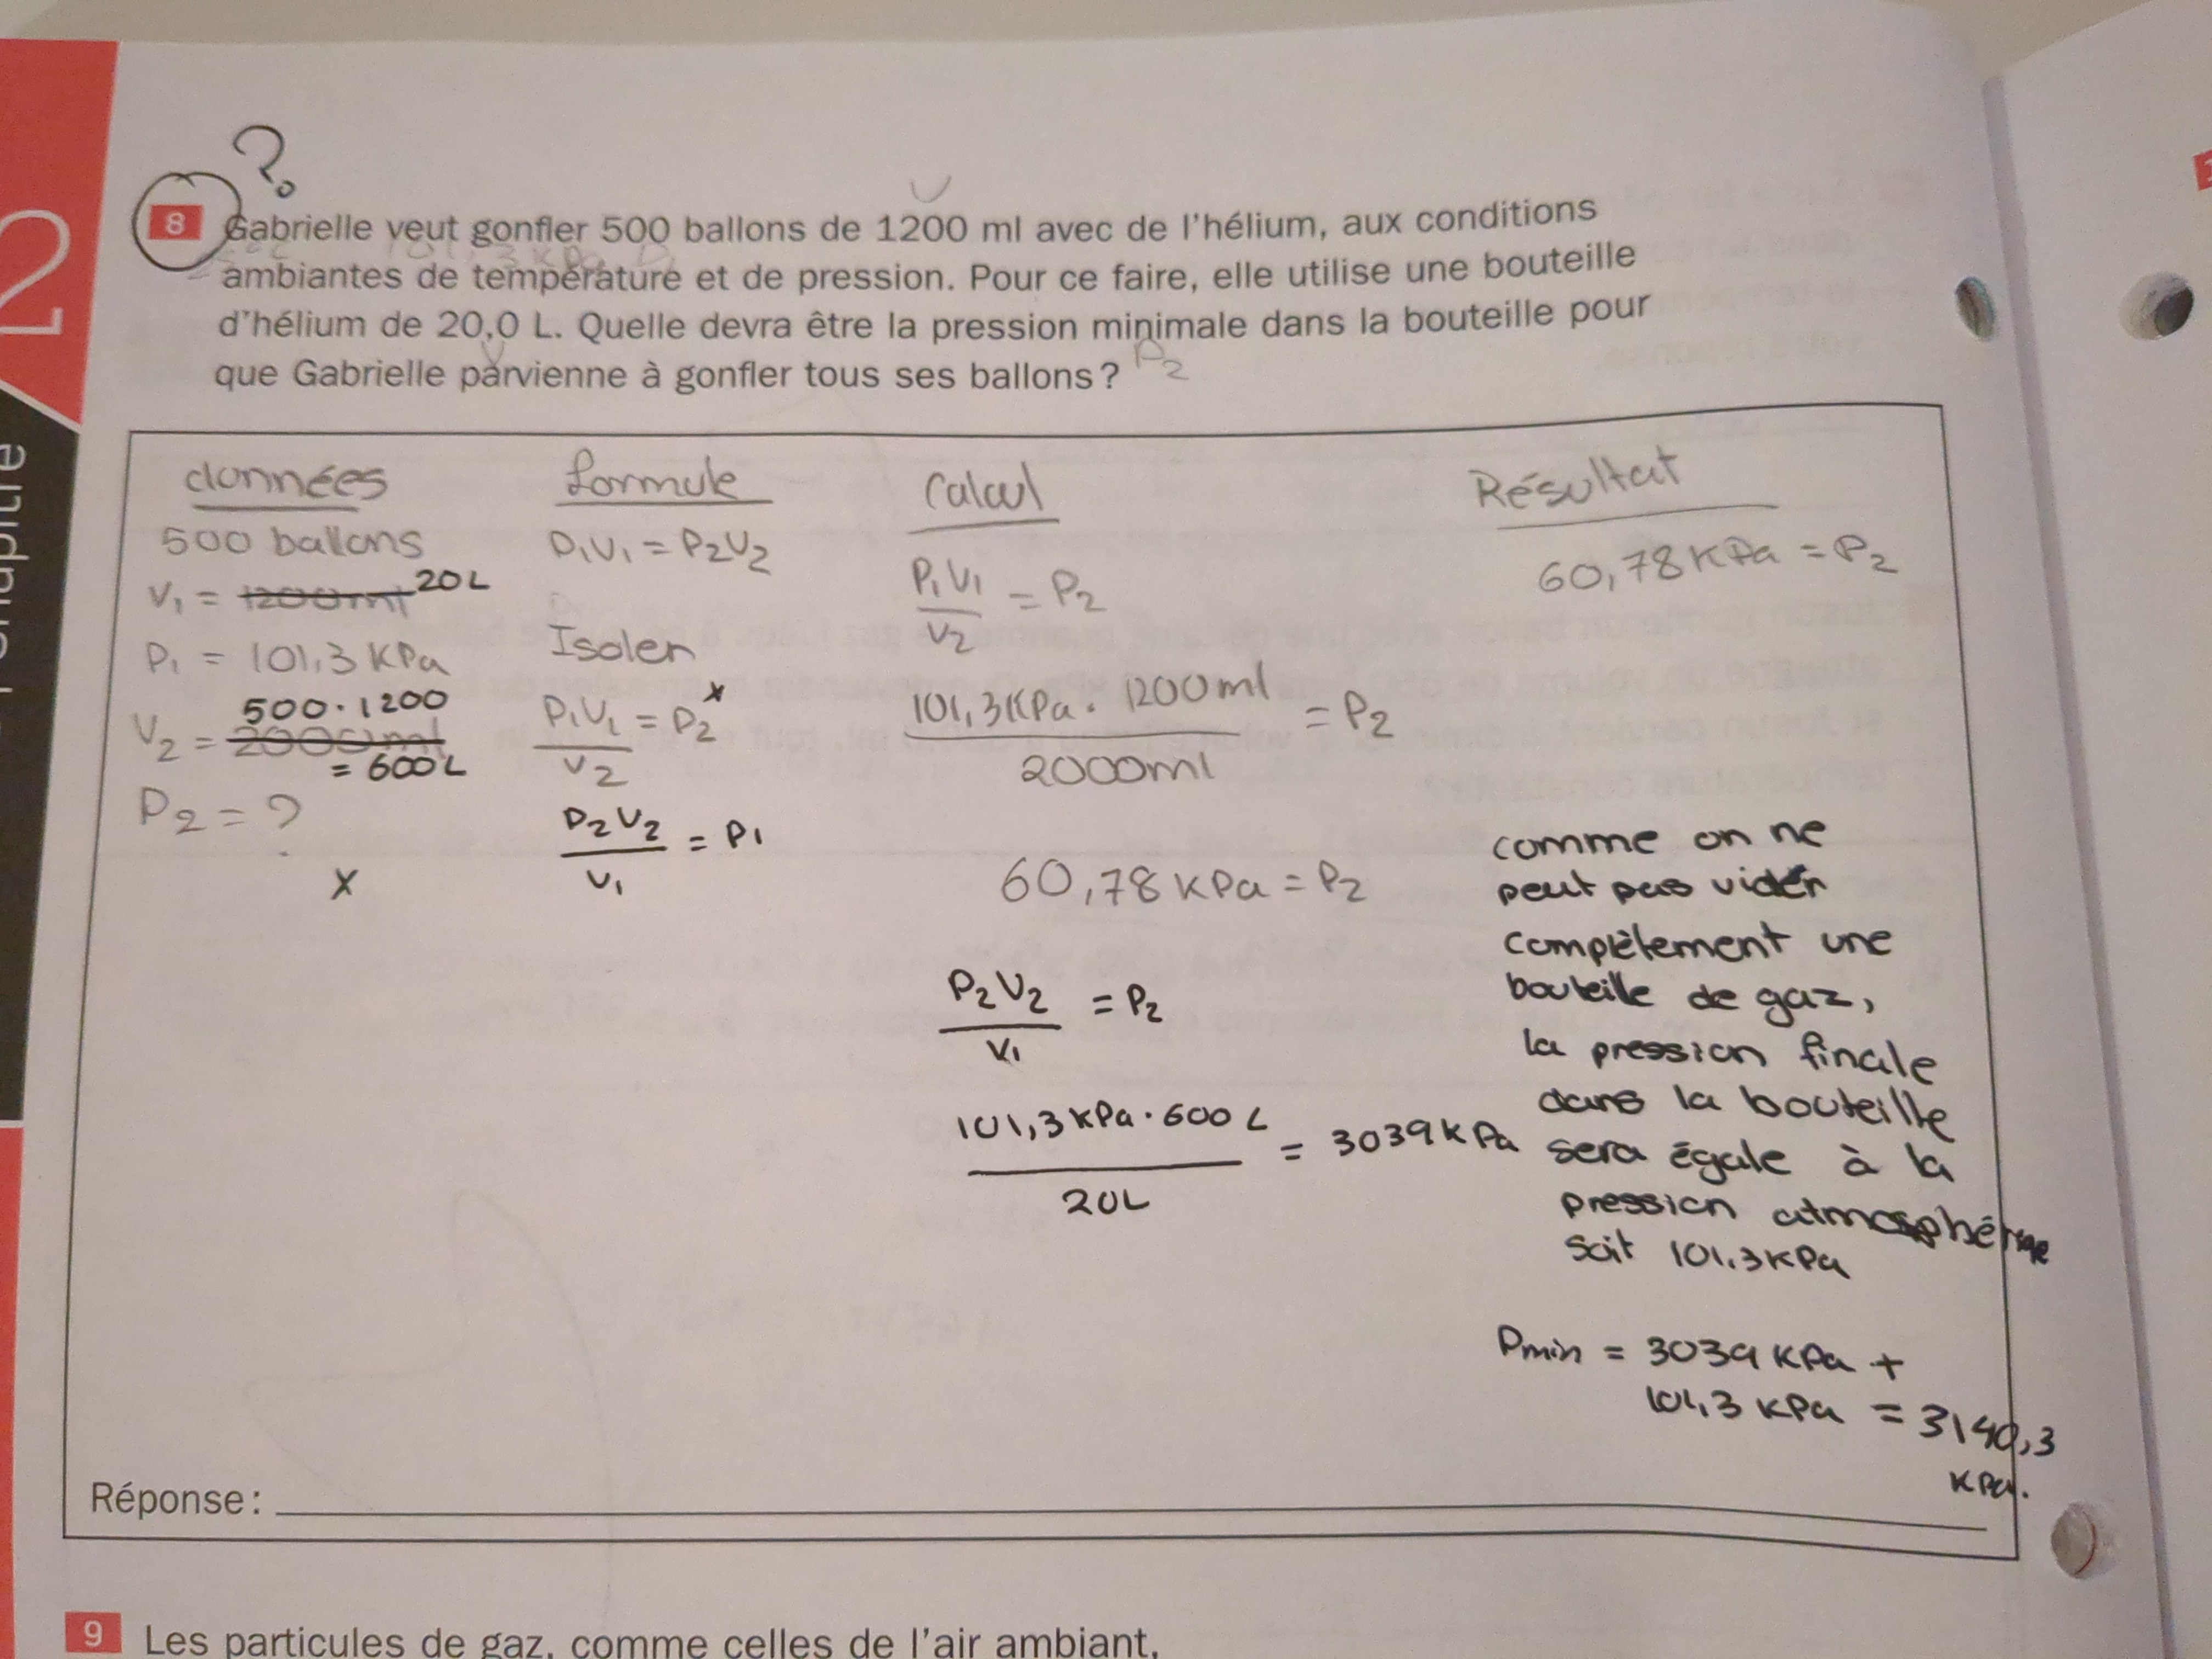 ?
8 Gabrielle veut gonfler 500 ballons de 1200 ml avec de l'hélium, aux conditions
ambiantes de température et de pression. Pour ce faire, elle utilise une bouteille
d'hélium de 20,0 L. Quelle devra être la pression minimale dans la bouteille pour
que Gabrielle parvienne à gonfler tous ses ballons ?
V
101,3 KPa
P2
2
données
500 ballons
V1 = 1200ml 20L
P1 = 101,3 KPa
500 · 1200
V2 = 2000ml
= 600L
P2 = ?
x
formule
P1V1 = P2V2
Isoler
P1V1 = P2 x
V2
P2V2 = P1
V1
Calcul
P1V1 = P2
V2
101,3KPa · 1200ml = P2
2000ml
60,78 KPa = P2
P2V2 = P2
V1
101,3 KPa · 600 L = 3039 KPa
20L
Résultat
60,78 KPa = P2
comme on ne
peut pas vider
complètement une
bouteille de gaz,
la pression finale
dans la bouteille
sera égale à la
pression
soit 101,3 KPa
Pmin = 3039 KPa +
101,3 KPa = 3140,3
KPa.
Réponse :
9 Les particules de gaz, comme celles de l'air ambiant,